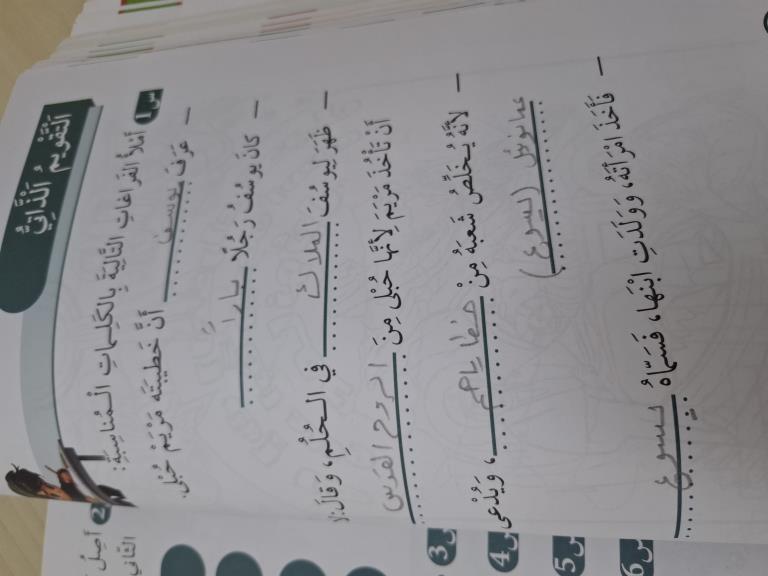 التَّقْوِيمُ الذَّاتِيُّ
س1 أَمْلَأُ الفَرَاغَاتِ التَّالِيَةِ بِالكَلِمَاتِ الْمُنَاسِبَةِ:
– عَرَفَ يوسف أَنَّ خَطِيبَتَه مَرْيَمْ حُبْلى.
– كَانَ يوسُفُ رَجُلًا بارًا
– ظَهَرَ لِيوسُفَ الملاك في الْـحُلُمِ، وَقَالَ: لا
أَنْ تَأْخُذَ مَرْيَمَ لِأَنَّها حُبْلى مِنَ الروح القدس
– لأَنَّهُ يُخَلِّصُ شَعبَهُ مِنْ خطاياهم، وَيُدْعى
عمانوئيل (يسوع)
– فَأَخَذَ امْرَأَتَهُ، وَوَلَدَتِ ابْنَهَا، فَسَمَّاهُ يسوع
2 أَصِلُ
التَّالي
س3
س4
س5
س6